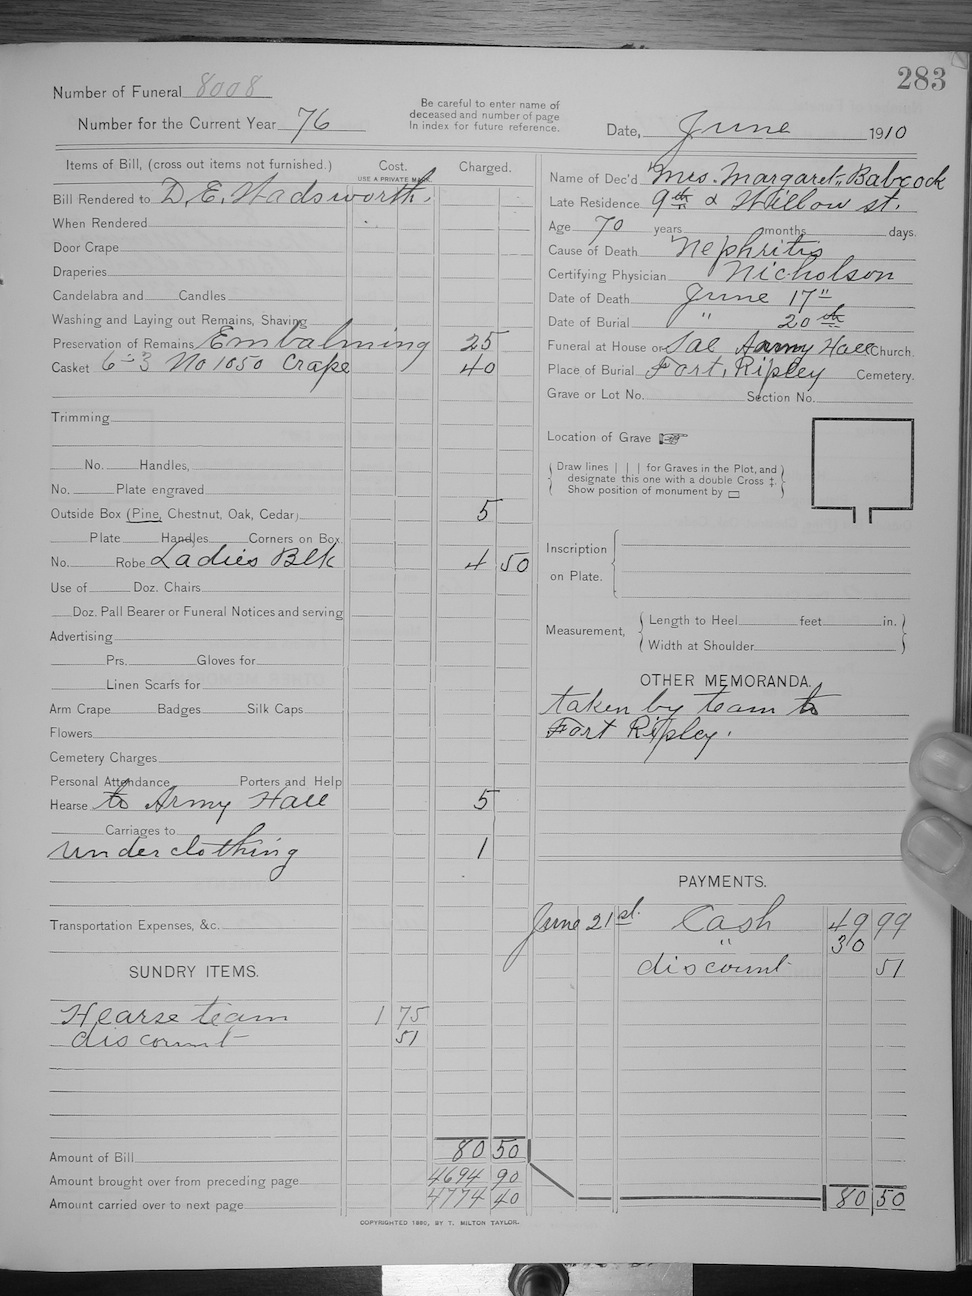 283
Number of Funeral 8008
Number for the Current Year 76
Be careful to enter name of
deceased and number of page
In index for future reference.
Date, June 1910
Items of Bill, (cross out items not furnished.) Cost. Charged.
USE A PRIVATE MARK.
Bill Rendered to D. E. Wadsworth.
When Rendered
Door Crape
Draperies
Candelabra and Candles
Washing and Laying out Remains, Shaving
Preservation of Remains Embalming 25
Casket 6-3 No 1050 Crape 40
Trimming
No. Handles,
No. Plate engraved
Outside Box (Pine, Chestnut, Oak, Cedar) 5
Plate Handles Corners on Box
No. Robe Ladies Blk 4 50
Use of Doz. Chairs
Doz. Pall Bearer or Funeral Notices and serving
Advertising
Prs. Gloves for
Linen Scarfs for
Arm Crape Badges Silk Caps
Flowers
Cemetery Charges
Personal Attendance Porters and Help
Hearse to Army Hall 5
Carriages to
underclothing 1
Transportation Expenses, &c.
SUNDRY ITEMS.
Hearse team 1 75
discount 51
Amount of Bill 80 50
Amount brought over from preceding page 4694 90
Amount carried over to next page 4774 40
Name of Dec'd Mrs. Margaret Babcock
Late Residence 9th & Willow st.
Age 70 years months days.
Cause of Death Nephritis
Certifying Physician Nicholson
Date of Death June 17"
Date of Burial " 20th
Funeral at House or Sal Army Hall Church.
Place of Burial Fort, Ripley Cemetery.
Grave or Lot No. Section No.
Location of Grave
Draw lines | | | for Graves in the Plot, and
designate this one with a double Cross ‡.
Show position of monument by ▭
Inscription
on Plate.
Measurement, Length to Heel feet in.
Width at Shoulder
OTHER MEMORANDA.
taken by team to
Fort Ripley.
PAYMENTS.
June 21st. Cash 49 99
" 30
discount 51
80 50
COPYRIGHTED 1880, BY T. MILTON TAYLOR.